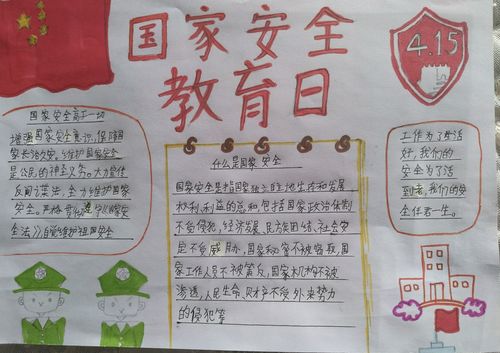 国家安全
教育日
4.15
国家安全高于一切
增强国家安全意识,保障国
家长治久安。维护国家安全
是公民的神圣义务。大力宣传
反间谍法,全力维护国家
安全。严格遵守《国家安
全法》自觉维护祖国安全
什么是国家安全
国家安全是指国家独立自主地生存和发展
权利、利益的总和,包括国家政治体制
不受侵犯,经济发展,民族团结,社会安
定不受威胁,国家秘密不被窃取,国
家工作人员不被策反,国家机构不被
渗透,人民生命、财产不受外来势力
的侵犯等
工作为了生活
好,我们的
安全为了活
到老,我们的安
全任君一生。